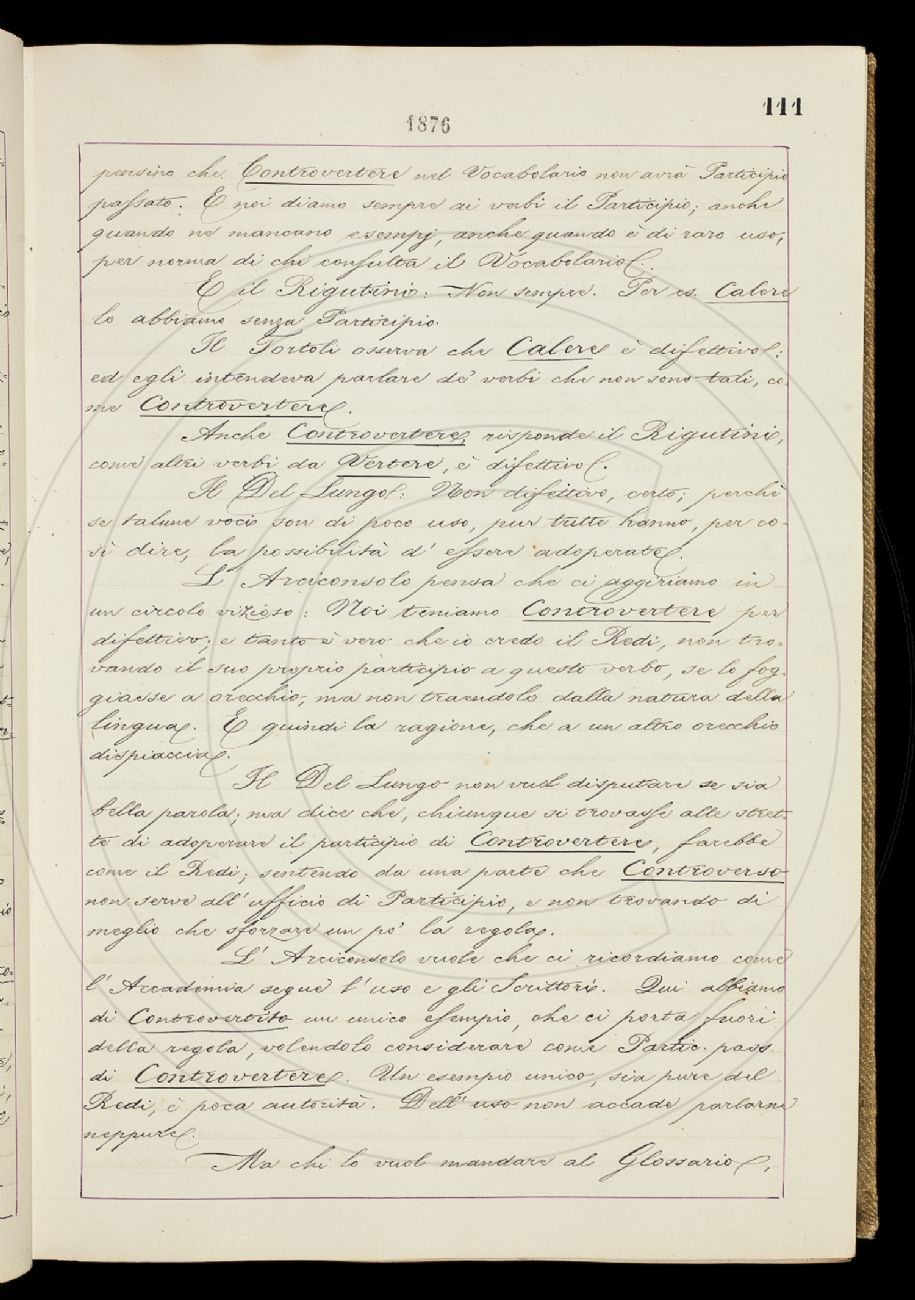 111
1876
pensino che Controvertere nel Vocabolario non avrà Participio
passato. E noi diamo sempre ai verbi il Participio; anche
quando ne mancano esempj, anche quando è di raro uso,
per norma di chi consulta il Vocabolario.
E il Rigutini: Non sempre. Per es. Calere
lo abbiamo senza Participio.
Il Tortoli osserva che Calere è difettivo:
ed egli intendeva parlare de' verbi che non sono tali, co-
me Controvertere.
Anche Controvertere, risponde il Rigutini,
come altri verbi da Vertere, è difettivo.
Il Del Lungo: Non difettivo, certo; perchè
se talune voci son di poco uso, pur tutte hanno, per co-
sì dire, la possibilità d'essere adoperate.
L'Arciconsolo pensa che ci aggiriamo in
un circolo vizioso: Noi teniamo Controvertere per
difettivo; e tanto è vero che io credo il Redi, non tro-
vando il suo proprio participio a questo verbo, se lo fog-
giasse a orecchio, ma non traendolo dalla natura della
lingua. E quindi la ragione, che a un altro orecchio
dispiaccia.
Il Del Lungo non vuol disputare se sia
bella parola, ma dice che, chiunque si trovasse alle stret-
te di adoperare il participio di Controvertere, farebbe
come il Redi; sentendo da una parte che Controverso
non serve all'ufficio di Participio, e non trovando di
meglio che sforzare un po' la regola.
L'Arciconsolo vuole che ci ricordiamo come
l'Accademia segue l'uso e gli Scrittori. Qui abbiamo
di Controvertito un unico esempio, che ci porta fuori
della regola, volendolo considerare come Partic. pass.
di Controvertere. Un esempio unico, sia pure del
Redi, è poca autorità. Dell'uso non accade parlarne
neppure.
Ma chi lo vuol mandare al Glossario,